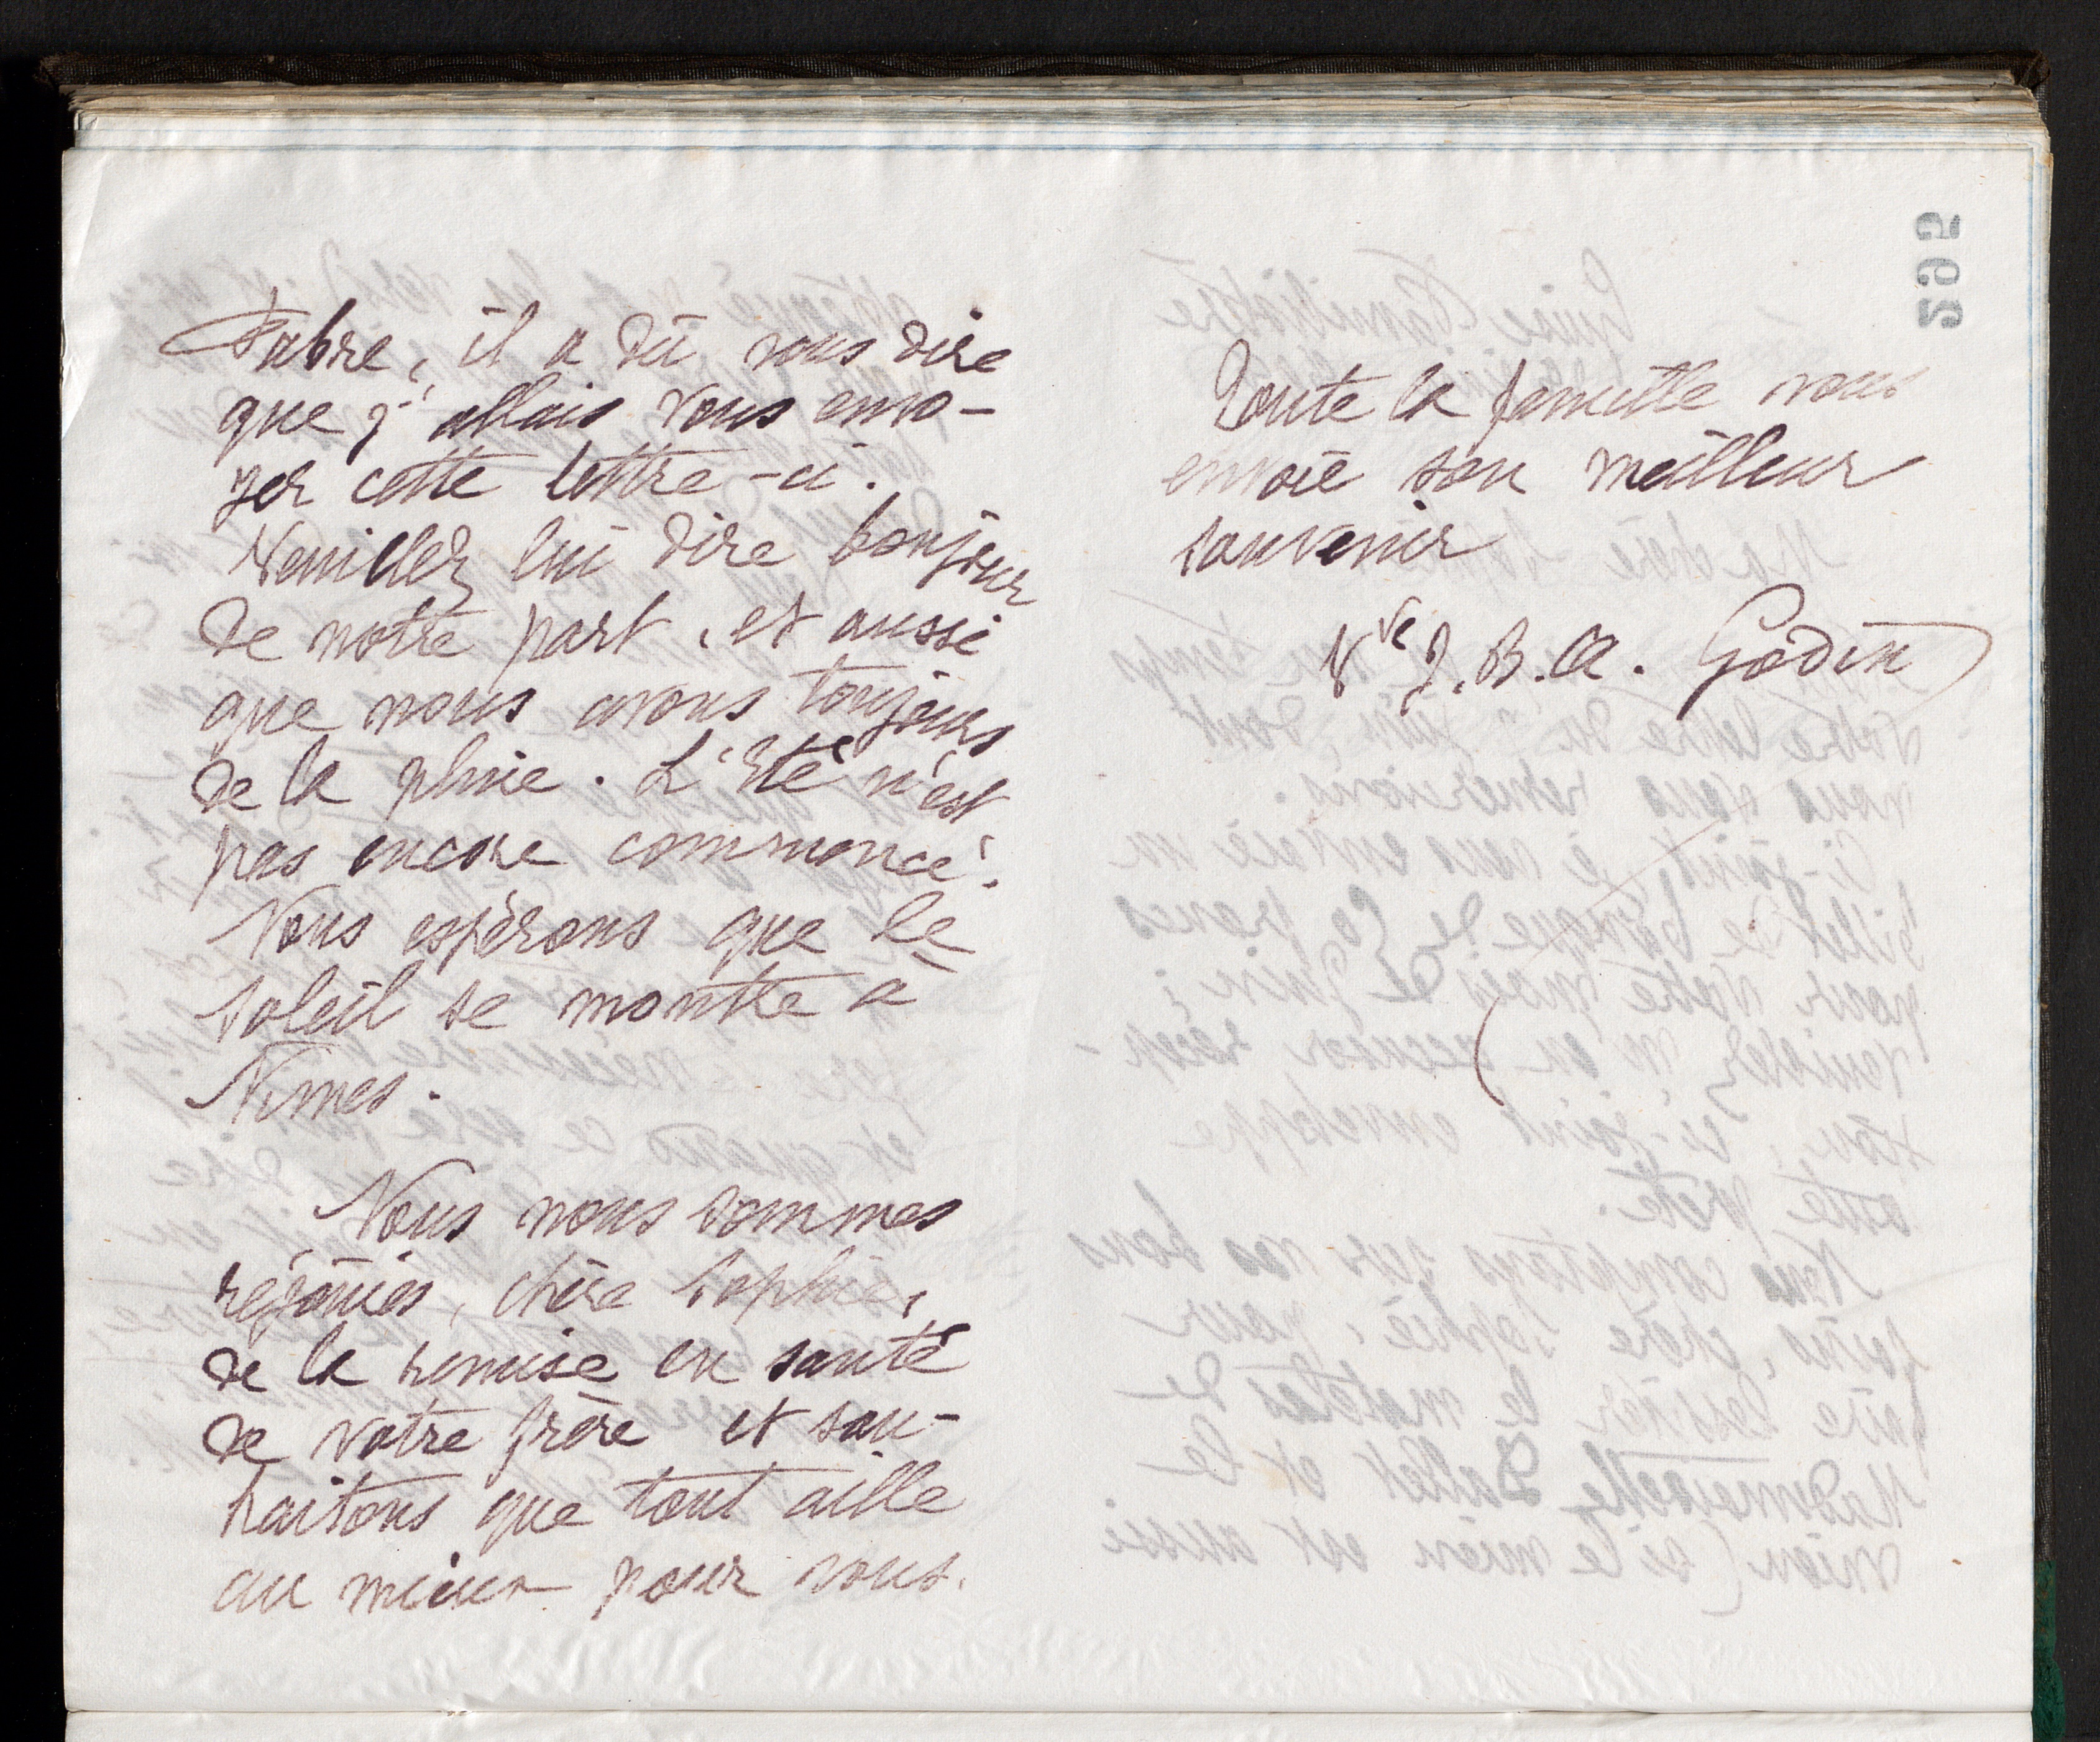 Fabre, il a dû vous dire
que j'allais vous envo-
yer cette lettre-ci.
Veuillez lui dire bonjour
de notre part, et aussi
que nous avons toujours
de la pluie. L'Eté n'est
pas encore commencé.
Nous espérons que le
soleil se montre à
Nimes.
Nous nous sommes
réjouies, chère Sophie,
de la remise en santé
de votre frère et sou-
haitons que tout aille
au mieux pour vous.
Toute la famille vous
envoie son meilleur
souvenir
Vve J. B. A. Godin
295